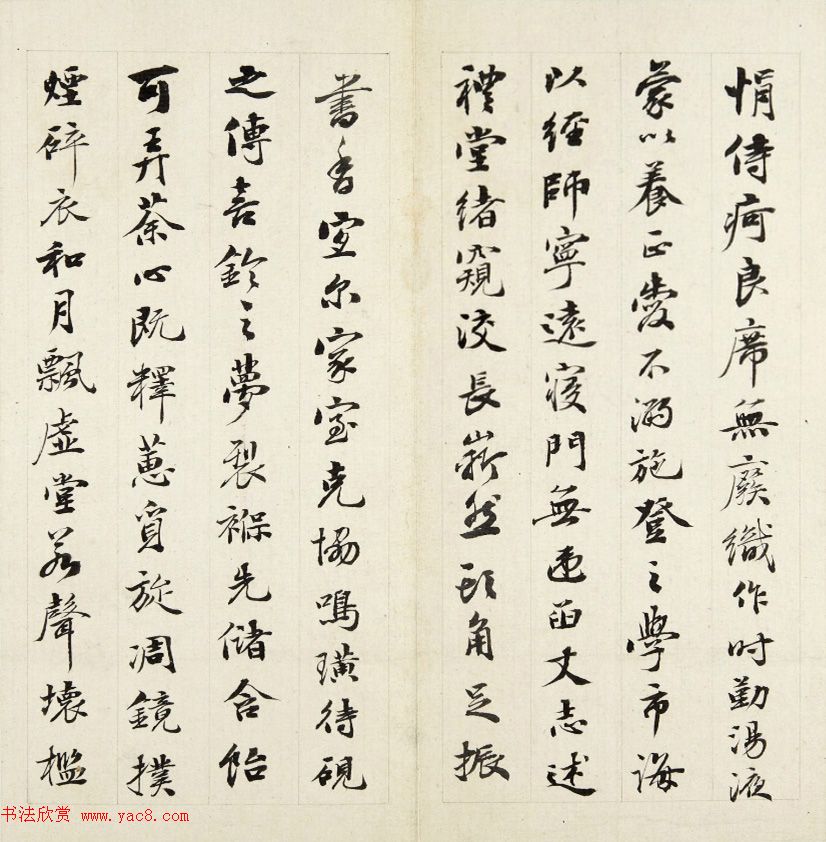 悁侍疴良席無廢織作时勤湯液
蒙以養正愛不溺施登之學市海
以經師寧遠寢門無迕函丈志述
禮堂緒窺浚長嶄然頭角足振
書香宜尔家室克協鳴璜待硯
之傳喜鈴之夢製褓先儲含飴
可弄荼心既釋蕙質旋凋鏡撲
煙碎衣和月飄虚堂若聲壞檻
书法欣赏 www.yac8.com